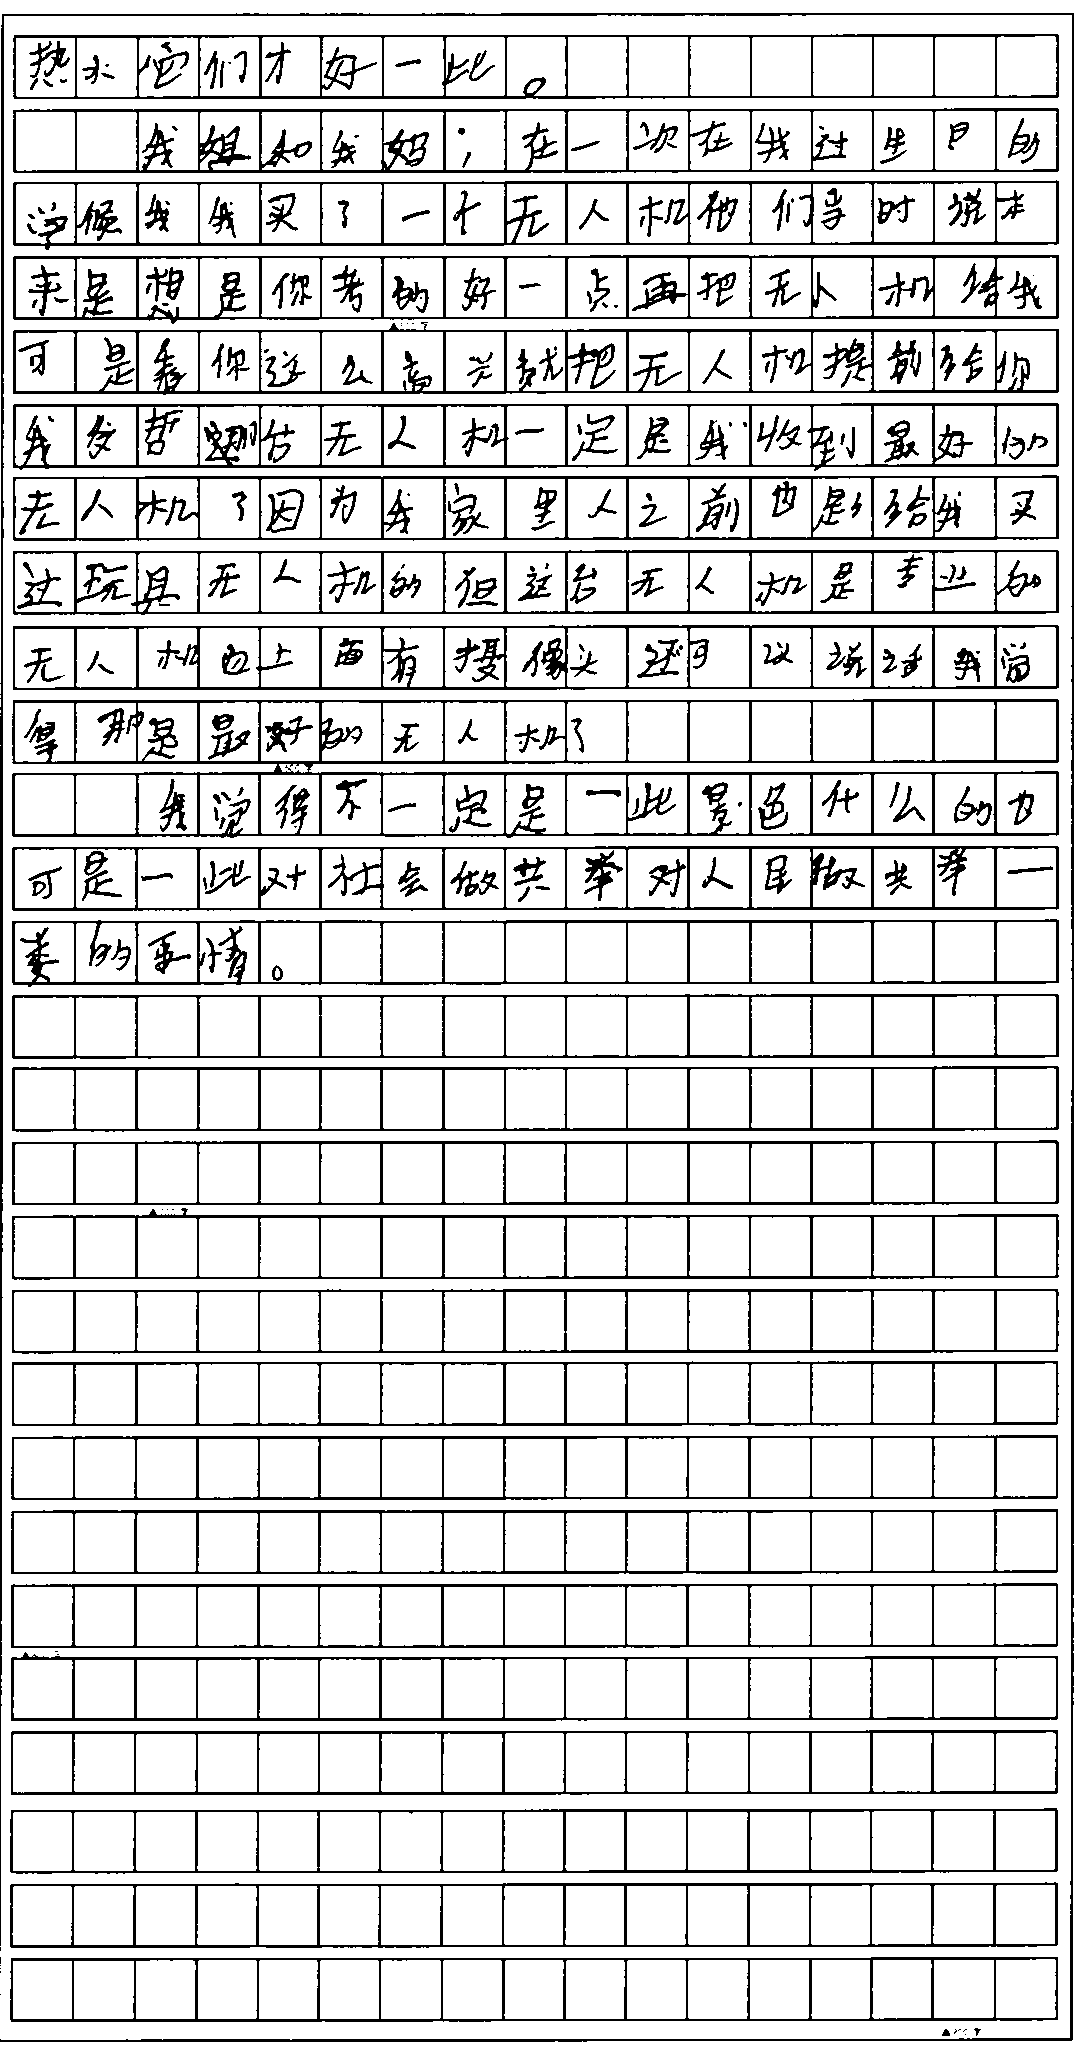 热水它们才好一些。
我姐和我妈；在一次在我过生日的
学候我我买了一个无人机他们当时说本
来是想是你考的好一点再把无人机给我
可是看你这么高兴就把无人机提前给你
我发哲那台无人机一定是我收到最好的
无人机了因为我家里人之前也是给我买
过玩具无人机的但这台无人机是专业的
无人机它上面有摄像头还可以说话我觉
得那是最好的无人机了
我觉得不一定是一些景色什么的力
可是一些对社会做共举对人民做共举一
类的事情。